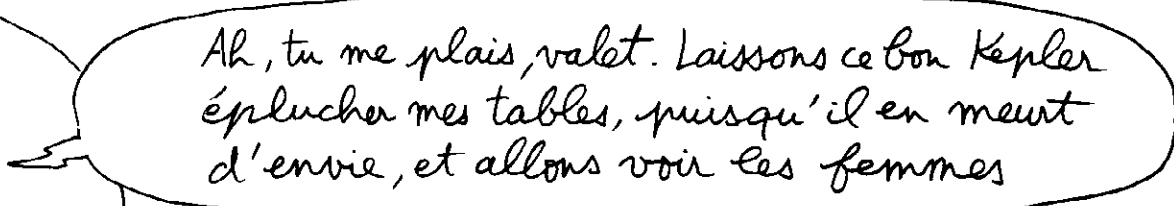 Ah, tu me plais, valet. Laissons ce bon Kepler
éplucher mes tables, puisqu'il en meurt
d'envie, et allons voir les femmes